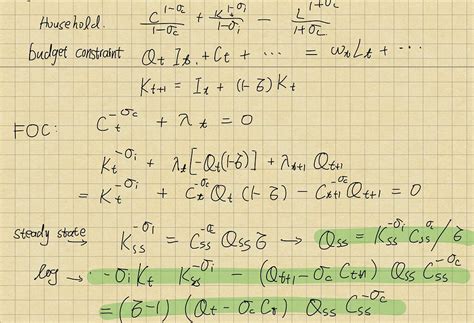 Household. C^{1-σc}/(1-σc) + K^{1-σi}/(1-σi) - L^{1+σc}/(1+σc)
budget constraint Qt It + Ct + ... = wt Lt + ...
Kt+1 = It + (1-δ) Kt
FOC: Ct^{-σc} + λt = 0
Kt^{-σi} + λt[-Qt(1-δ)] + λt+1 Qt+1
= Kt^{-σi} + Ct^{-σc} Qt (1-δ) - Ct+1^{-σc} Qt+1 = 0
steady state → Kss^{-σi} = Css^{-σc} Qss δ → Qss = Kss^{-σi} Css^{σc} / δ
log → -σi Kt Kss^{-σi} - (Qt+1 - σc Ct+1) Qss Css^{-σc}
= (δ-1) (Qt - σc Ct) Qss Css^{-σc}